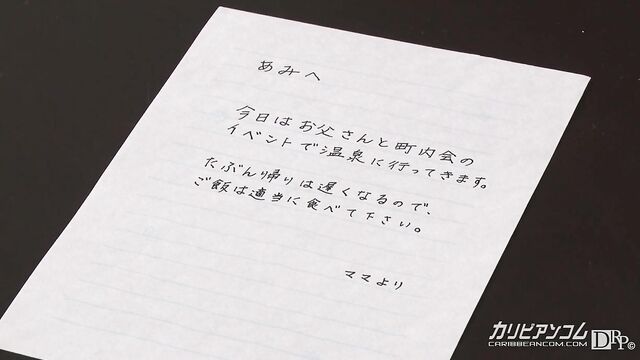 あみへ
今日はお父さんと町内会の
イベントで温泉に行ってきます。
たぶん帰りは遅くなるので、
ご飯は適当に食べて下さい。
ママより
カリビアンコム
CARIBBEANCOM.COM
DRP©